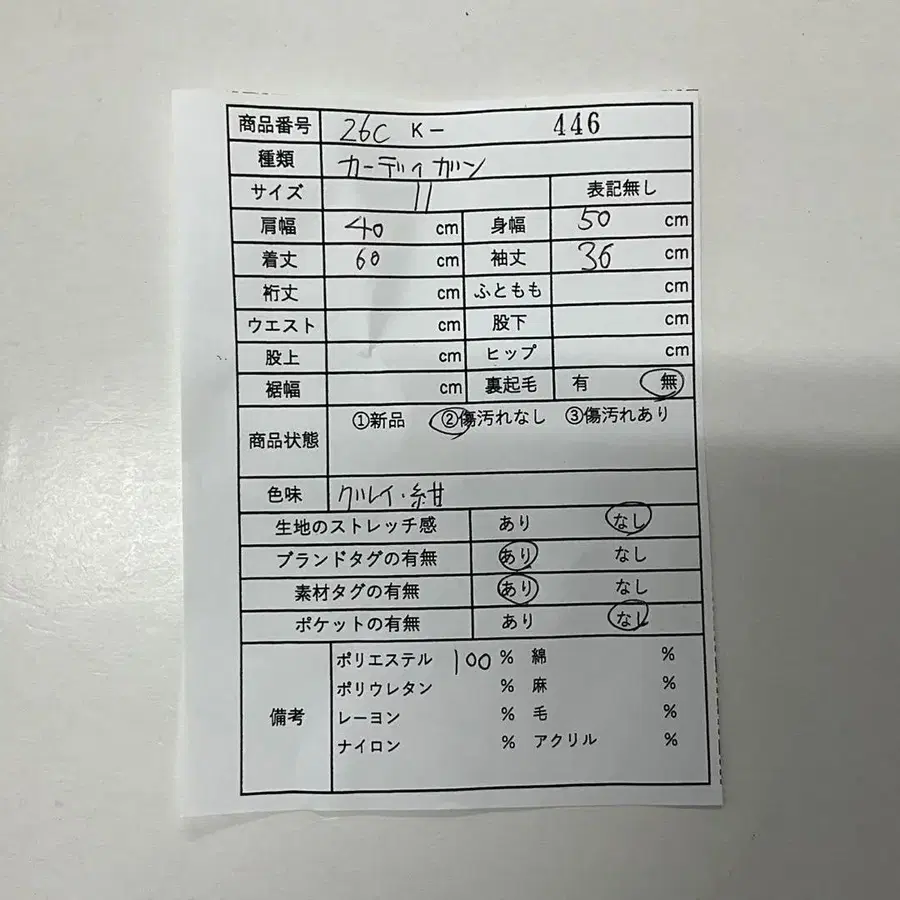 商品番号 26C K- 446
種類 カーディガン
サイズ 11 表記無し
肩幅 40 cm 身幅 50 cm
着丈 60 cm 袖丈 36 cm
裄丈 cm ふともも cm
ウエスト cm 股下 cm
股上 cm ヒップ cm
裾幅 cm 裏起毛 有 無
商品状態 ①新品 ②傷汚れなし ③傷汚れあり
色味 グレイ・紺
生地のストレッチ感 あり なし
ブランドタグの有無 あり なし
素材タグの有無 あり なし
ポケットの有無 あり なし
備考
ポリエステル 100 % 綿 %
ポリウレタン % 麻 %
レーヨン % 毛 %
ナイロン % アクリル %